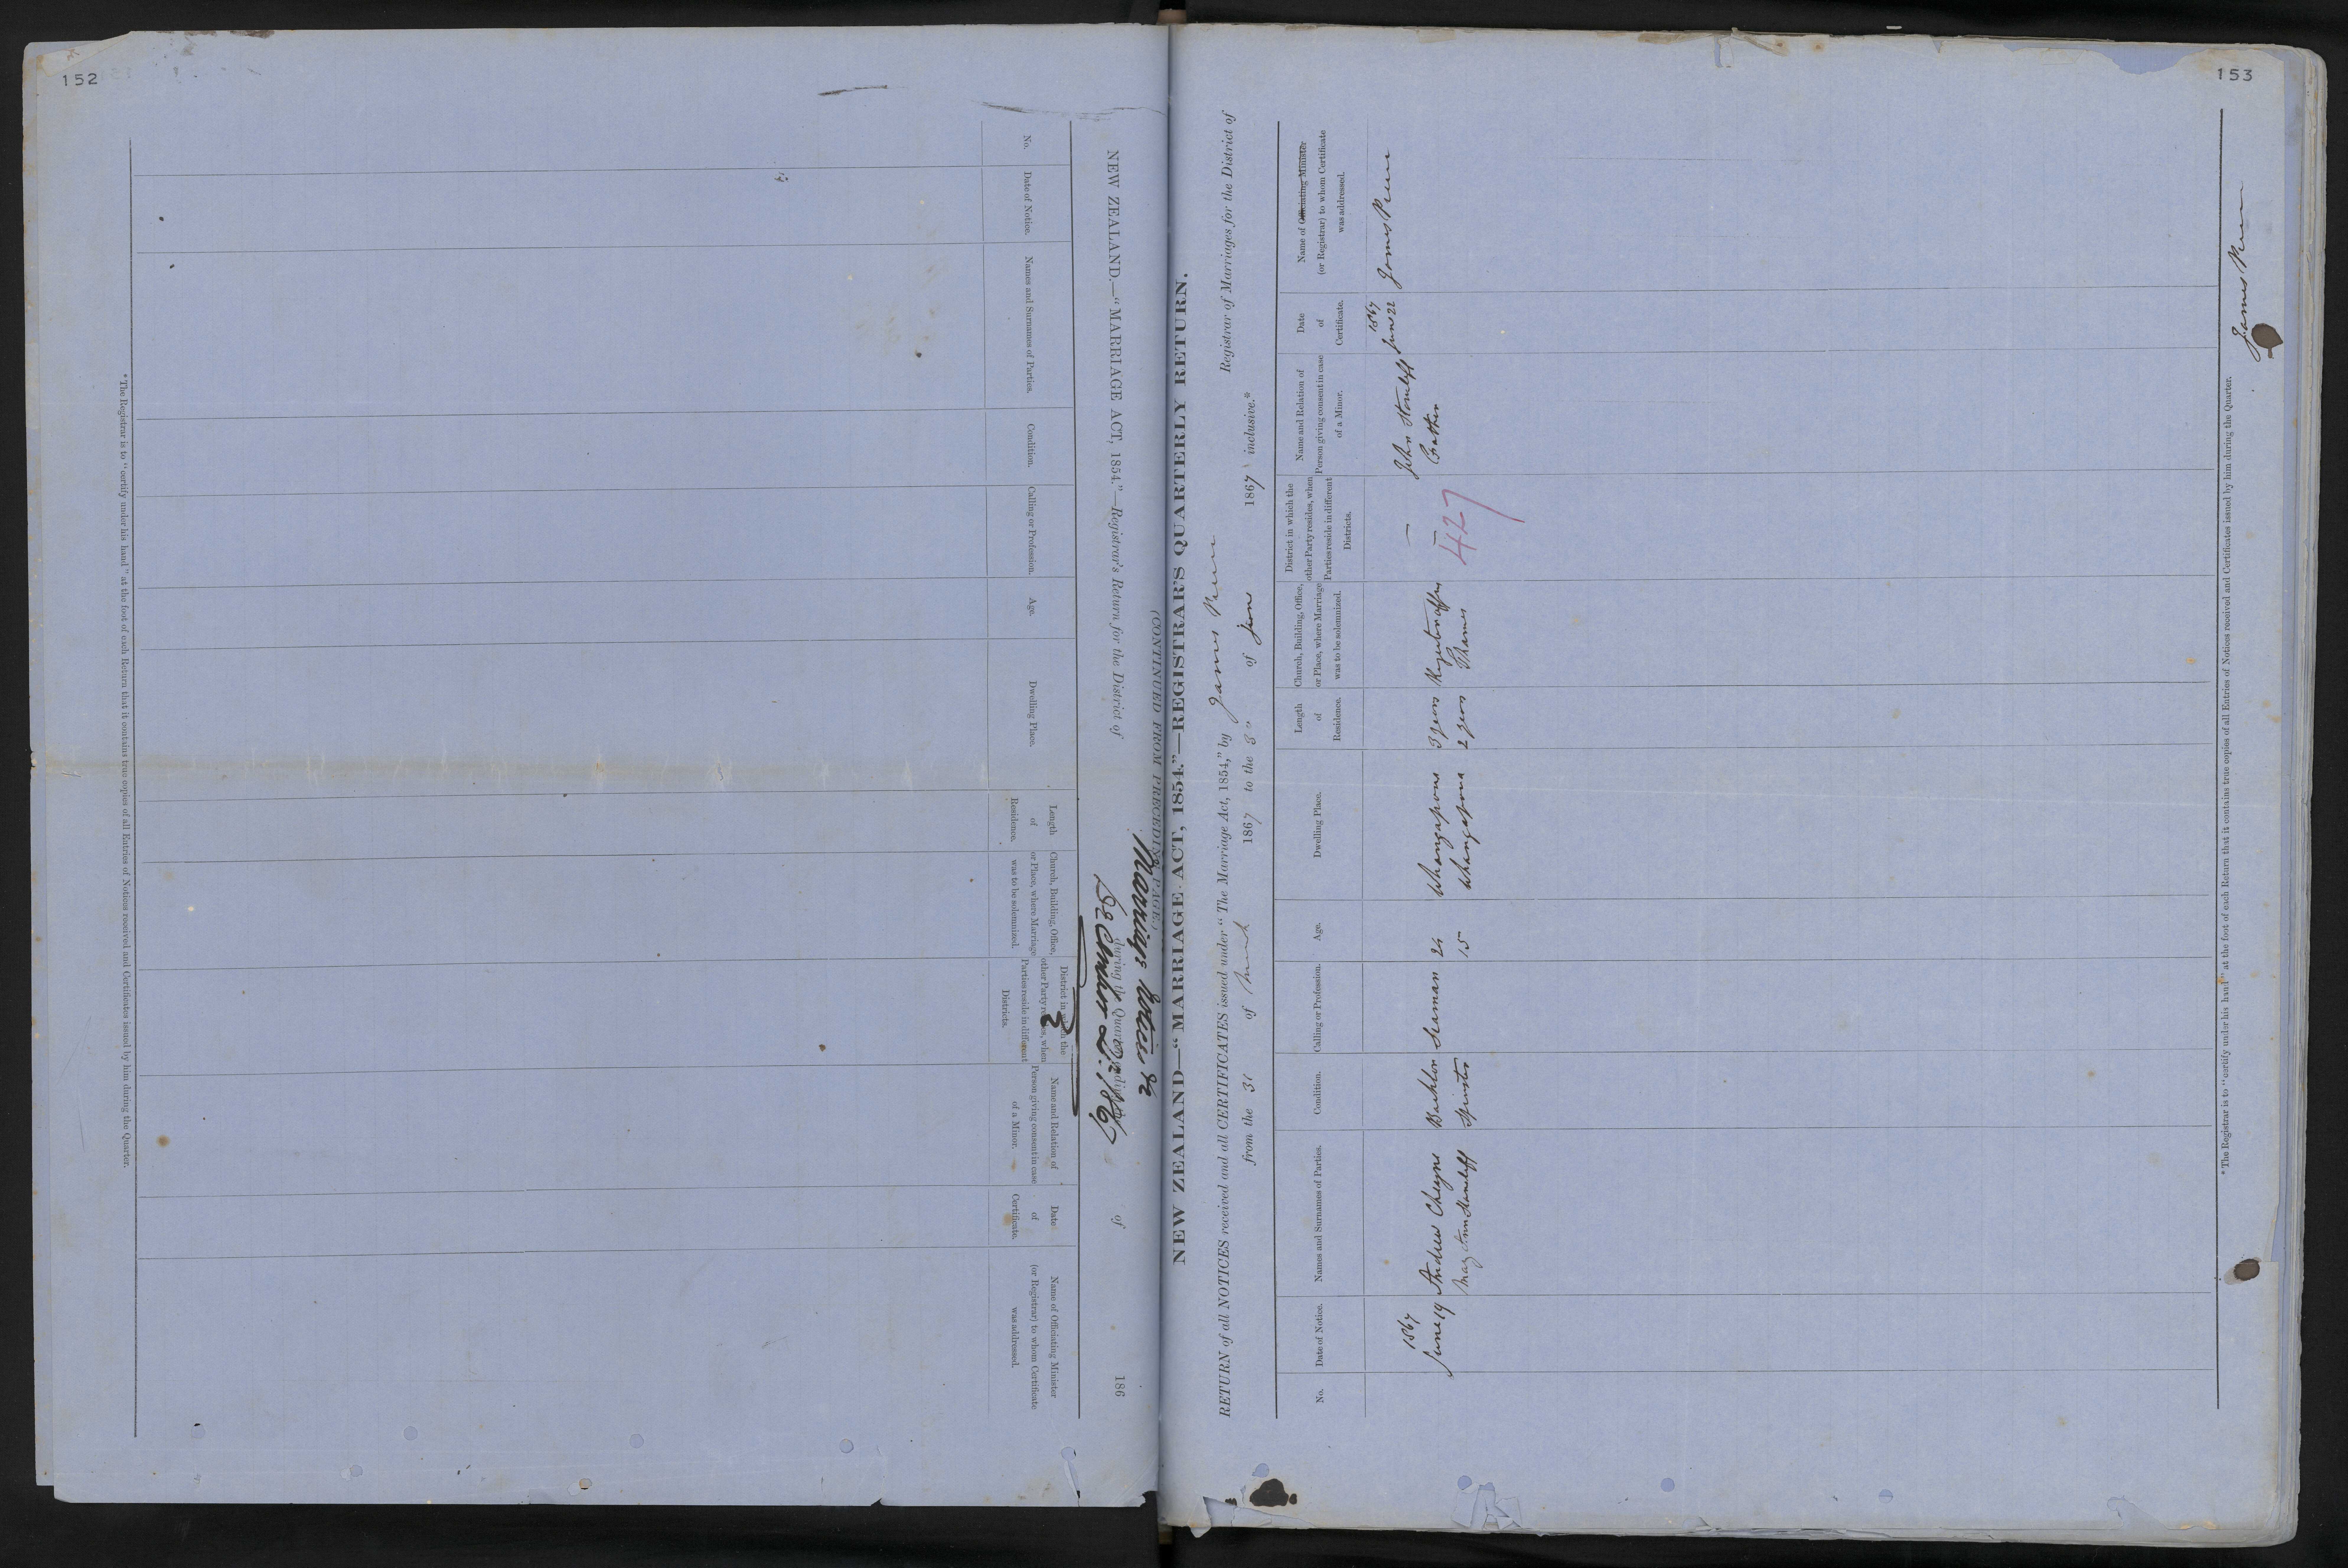 152
NEW ZEALAND.—"MARRIAGE ACT, 1854."—Registrar's Return for the District of
during the Quarter ending of 186
(CONTINUED FROM PRECEDING PAGE.)
Marriage Notices &c
December Qr. 1867
No.
Date of Notice.
Names and Surnames of Parties.
Condition.
Calling or Profession.
Age.
Dwelling Place.
Length
of
Residence.
Church, Building, Office,
or Place, where Marriage
was to be solemnized.
District in which the
other Party resides, when
Parties reside in different
Districts.
Name and Relation of
Person giving consent in case
of a Minor.
Date
of
Certificate.
Name of Officiating Minister
(or Registrar) to whom Certificate
was addressed.
* The Registrar is to "certify under his hand" at the foot of each Return that it contains true copies of all Entries of Notices received and Certificates issued by him during the Quarter.
153
NEW ZEALAND—"MARRIAGE ACT, 1854."—REGISTRAR'S QUARTERLY RETURN.
RETURN of all NOTICES received and all CERTIFICATES issued under "The Marriage Act, 1854," by James Registrar of Marriages for the District of
from the 31 of March 1867 to the 30 of June 1867 inclusive.*
No.
Date of Notice.
Names and Surnames of Parties.
Condition.
Calling or Profession.
Age.
Dwelling Place.
Length
of
Residence.
Church, Building, Office,
or Place, where Marriage
was to be solemnized.
District in which the
other Party resides, when
Parties reside in different
Districts.
Name and Relation of
Person giving consent in case
of a Minor.
Date
of
Certificate.
Name of Officiating Minister
(or Registrar) to whom Certificate
was addressed.
1867
June 19 Andrew Cheyne Bachelor Seaman 24 Whangapoua 3 years Registrar office — John June 22 James
Ann Spinster 15 Whangapoua 2 years Thames —
1867
427
* The Registrar is to "certify under his hand" at the foot of each Return that it contains true copies of all Entries of Notices received and Certificates issued by him during the Quarter.
James